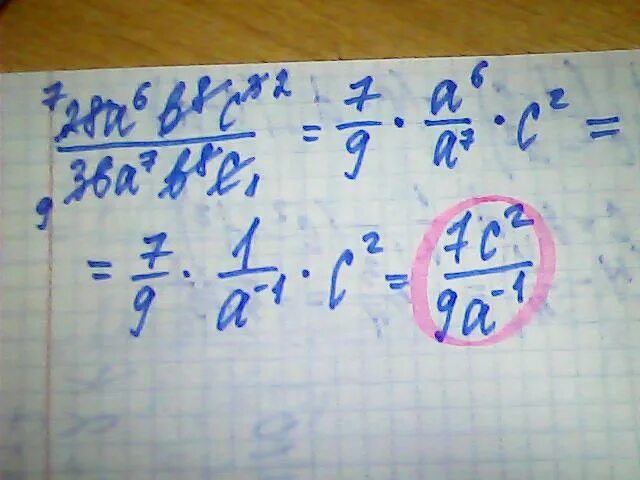 7 28a⁶ b⁸ c² / 9 36a⁷ b⁸ c 1 = 7/9 · a⁶/a⁷ · c² =
= 7/9 · 1/a⁻¹ · c² = 7c²/9a⁻¹